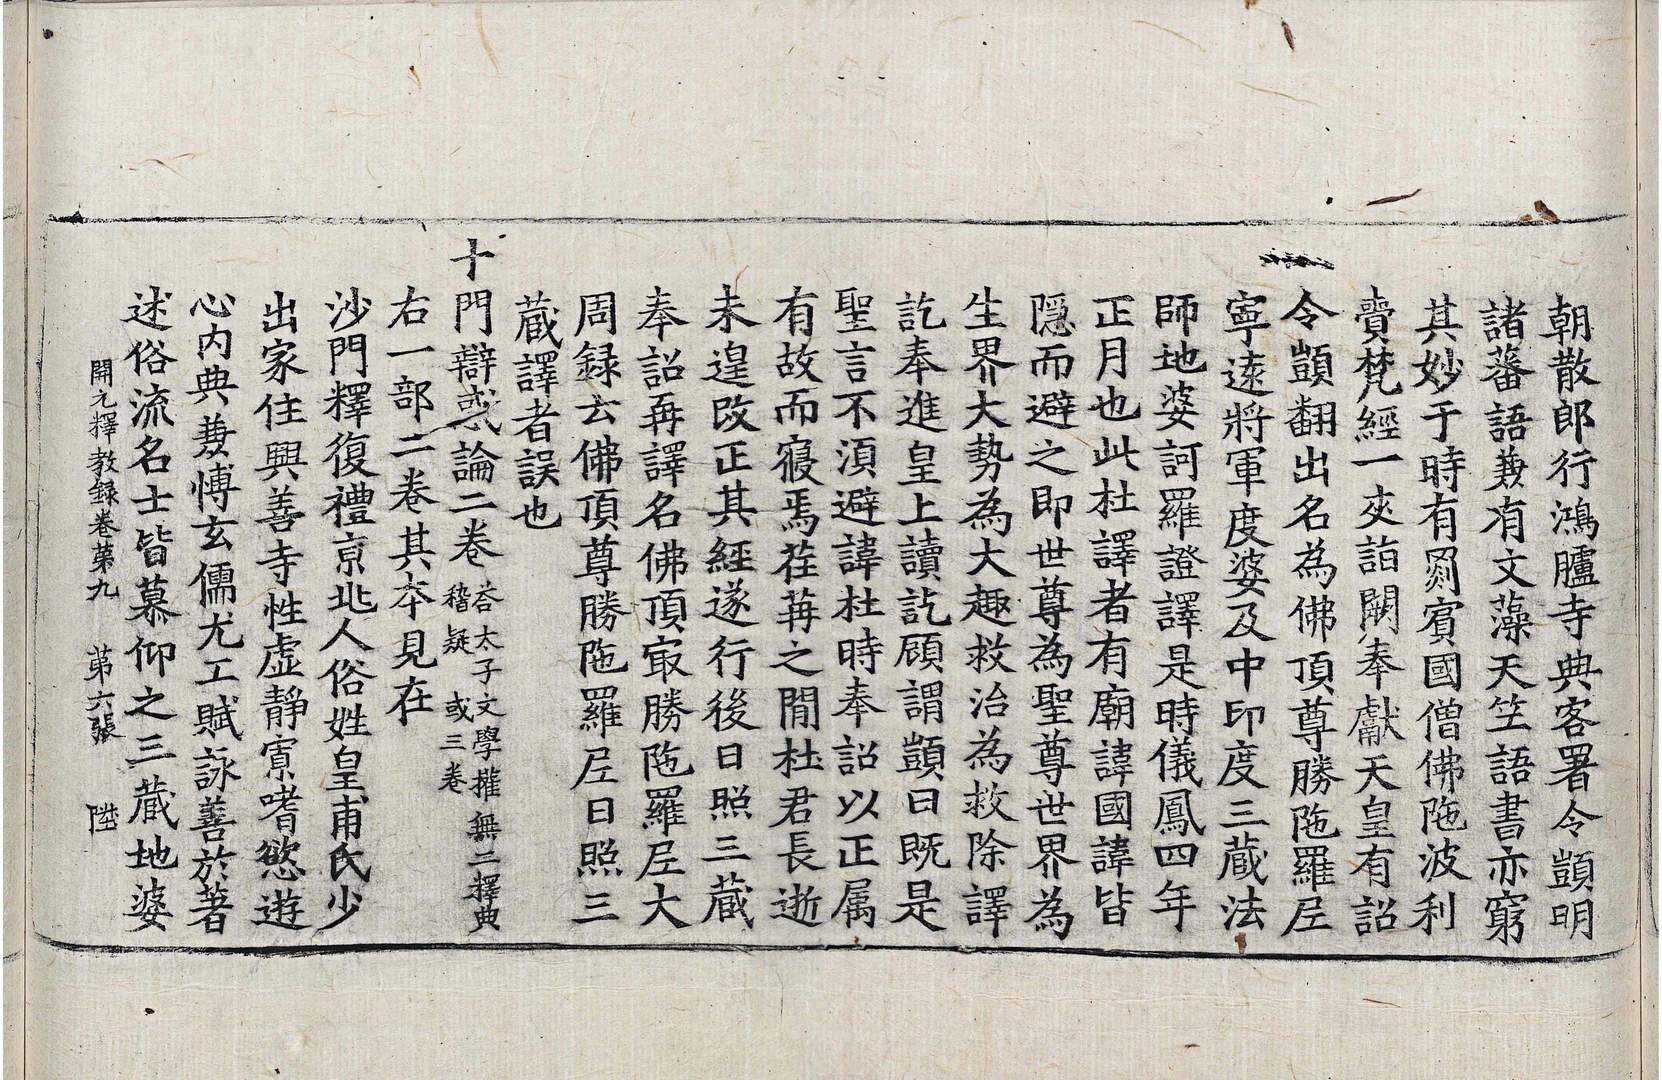 朝散郎行鴻臚寺典客署令顗明
諸蕃語兼有文藻天竺語書亦窮
其妙于時有罽賓國僧佛陁波利
賷梵經一夾詣闕奉獻天皇有詔
令顗翻出名為佛頂尊勝陁羅尼
寧遠將軍度婆及中印度三藏法
師地婆訶羅證譯是時儀鳳四年
正月也此杜譯者有廟諱國諱皆
隱而避之即世尊為聖尊世界為
生界大勢為大趣救治為救除譯
訖奉進皇上讀訖顧謂顗曰既是
聖言不湏避諱杜時奉詔以正属
有故而寢焉荏苒之閒杜君長逝
未遑改正其經遂行後日照三藏
奉詔再譯名佛頂㝡勝陁羅尼大
周録云佛頂尊勝陁羅尼日照三
藏譯者誤也
十門辯惑論二卷 荅太子文學權無二釋典稽疑 或三卷
右一部二卷其本見在
沙門釋復禮京兆人俗姓皇甫氏少
出家住興善寺性虛靜寡嗜慾遊
心内典兼博玄儒尤工賦詠善於著
述俗流名士皆慕仰之三藏地婆
開元釋教録卷苐九 苐六張 陞